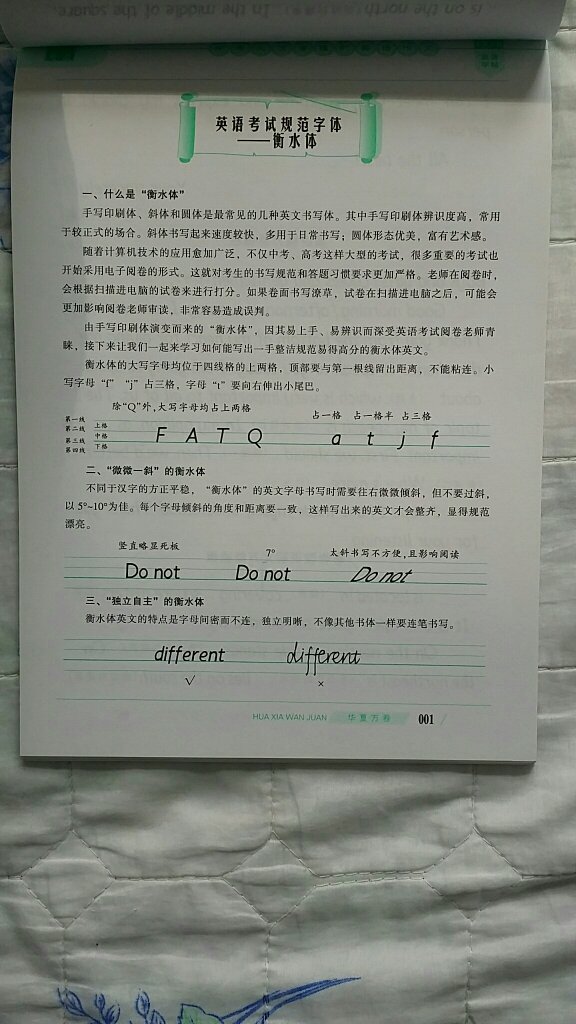 is on the north
In the middle of the square.
英语考试规范字体
——衡水体
一、什么是“衡水体”
手写印刷体、斜体和圆体是最常见的几种英文书写体。其中手写印刷体辨识度高，常用
于较正式的场合。斜体书写起来速度较快，多用于日常书写；圆体形态优美，富有艺术感。
随着计算机技术的应用愈加广泛，不仅中考、高考这样大型的考试，很多重要的考试也
开始采用电子阅卷的形式。这就对考生的书写规范和答题习惯要求更加严格。老师在阅卷时，
会根据扫描进电脑的试卷来进行打分。如果卷面书写潦草，试卷在扫描进电脑之后，可能会
更加影响阅卷老师审读，非常容易造成误判。
由手写印刷体演变而来的“衡水体”，因其易上手、易辨识而深受英语考试阅卷老师青
睐，接下来让我们一起来学习如何能写出一手整洁规范易得高分的衡水体英文。
衡水体的大写字母均位于四线格的上两格，顶部要与第一根线留出距离，不能粘连。小
写字母“f”“j”占三格，字母“t”要向右伸出小尾巴。
除“Q”外，大写字母均占上两格 占一格 占一格半 占三格
第一线 上格
第二线 中格
第三线 下格
第四线
F A T Q a t j f
二、“微微一斜”的衡水体
不同于汉字的方正平稳，“衡水体”的英文字母书写时需要往右微微倾斜，但不要过斜，
以5°~10°为佳。每个字母倾斜的角度和距离要一致，这样写出来的英文才会整齐，显得规范
漂亮。
竖直略显死板 7° 太斜书写不方便，且影响阅读
Do not Do not Do not
三、“独立自主”的衡水体
衡水体英文的特点是字母间密而不连，独立明晰，不像其他书体一样要连笔书写。
different different
√ ×
HUA XIA WAN JUAN 华夏万卷 001